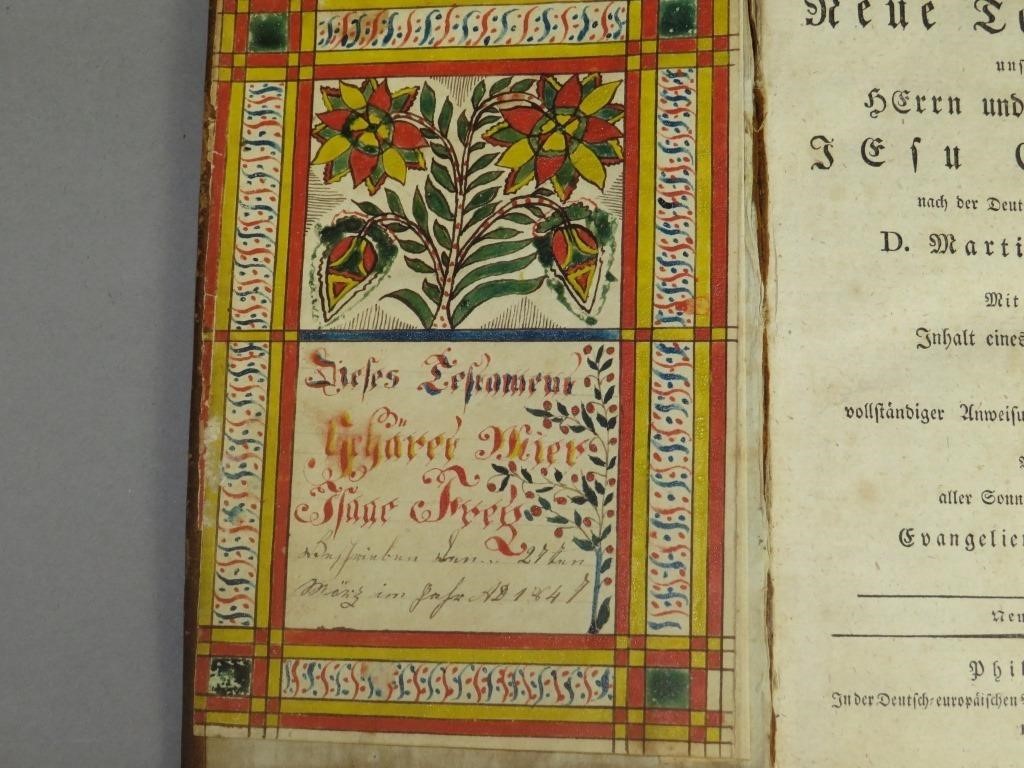 Dieses Testament
Gehäret Mier
Isaac Frey
Geschrieben den 27ten
März im Jahr AD 1847
Neue Te
uns
HErrn und
JEsu C
nach der Deut
D. Marti
Mit
Inhalt eines
vollständiger Anweisu
aller Sonn
Evangelien
Neu
Phil
In der Deutsch-europäischen
1